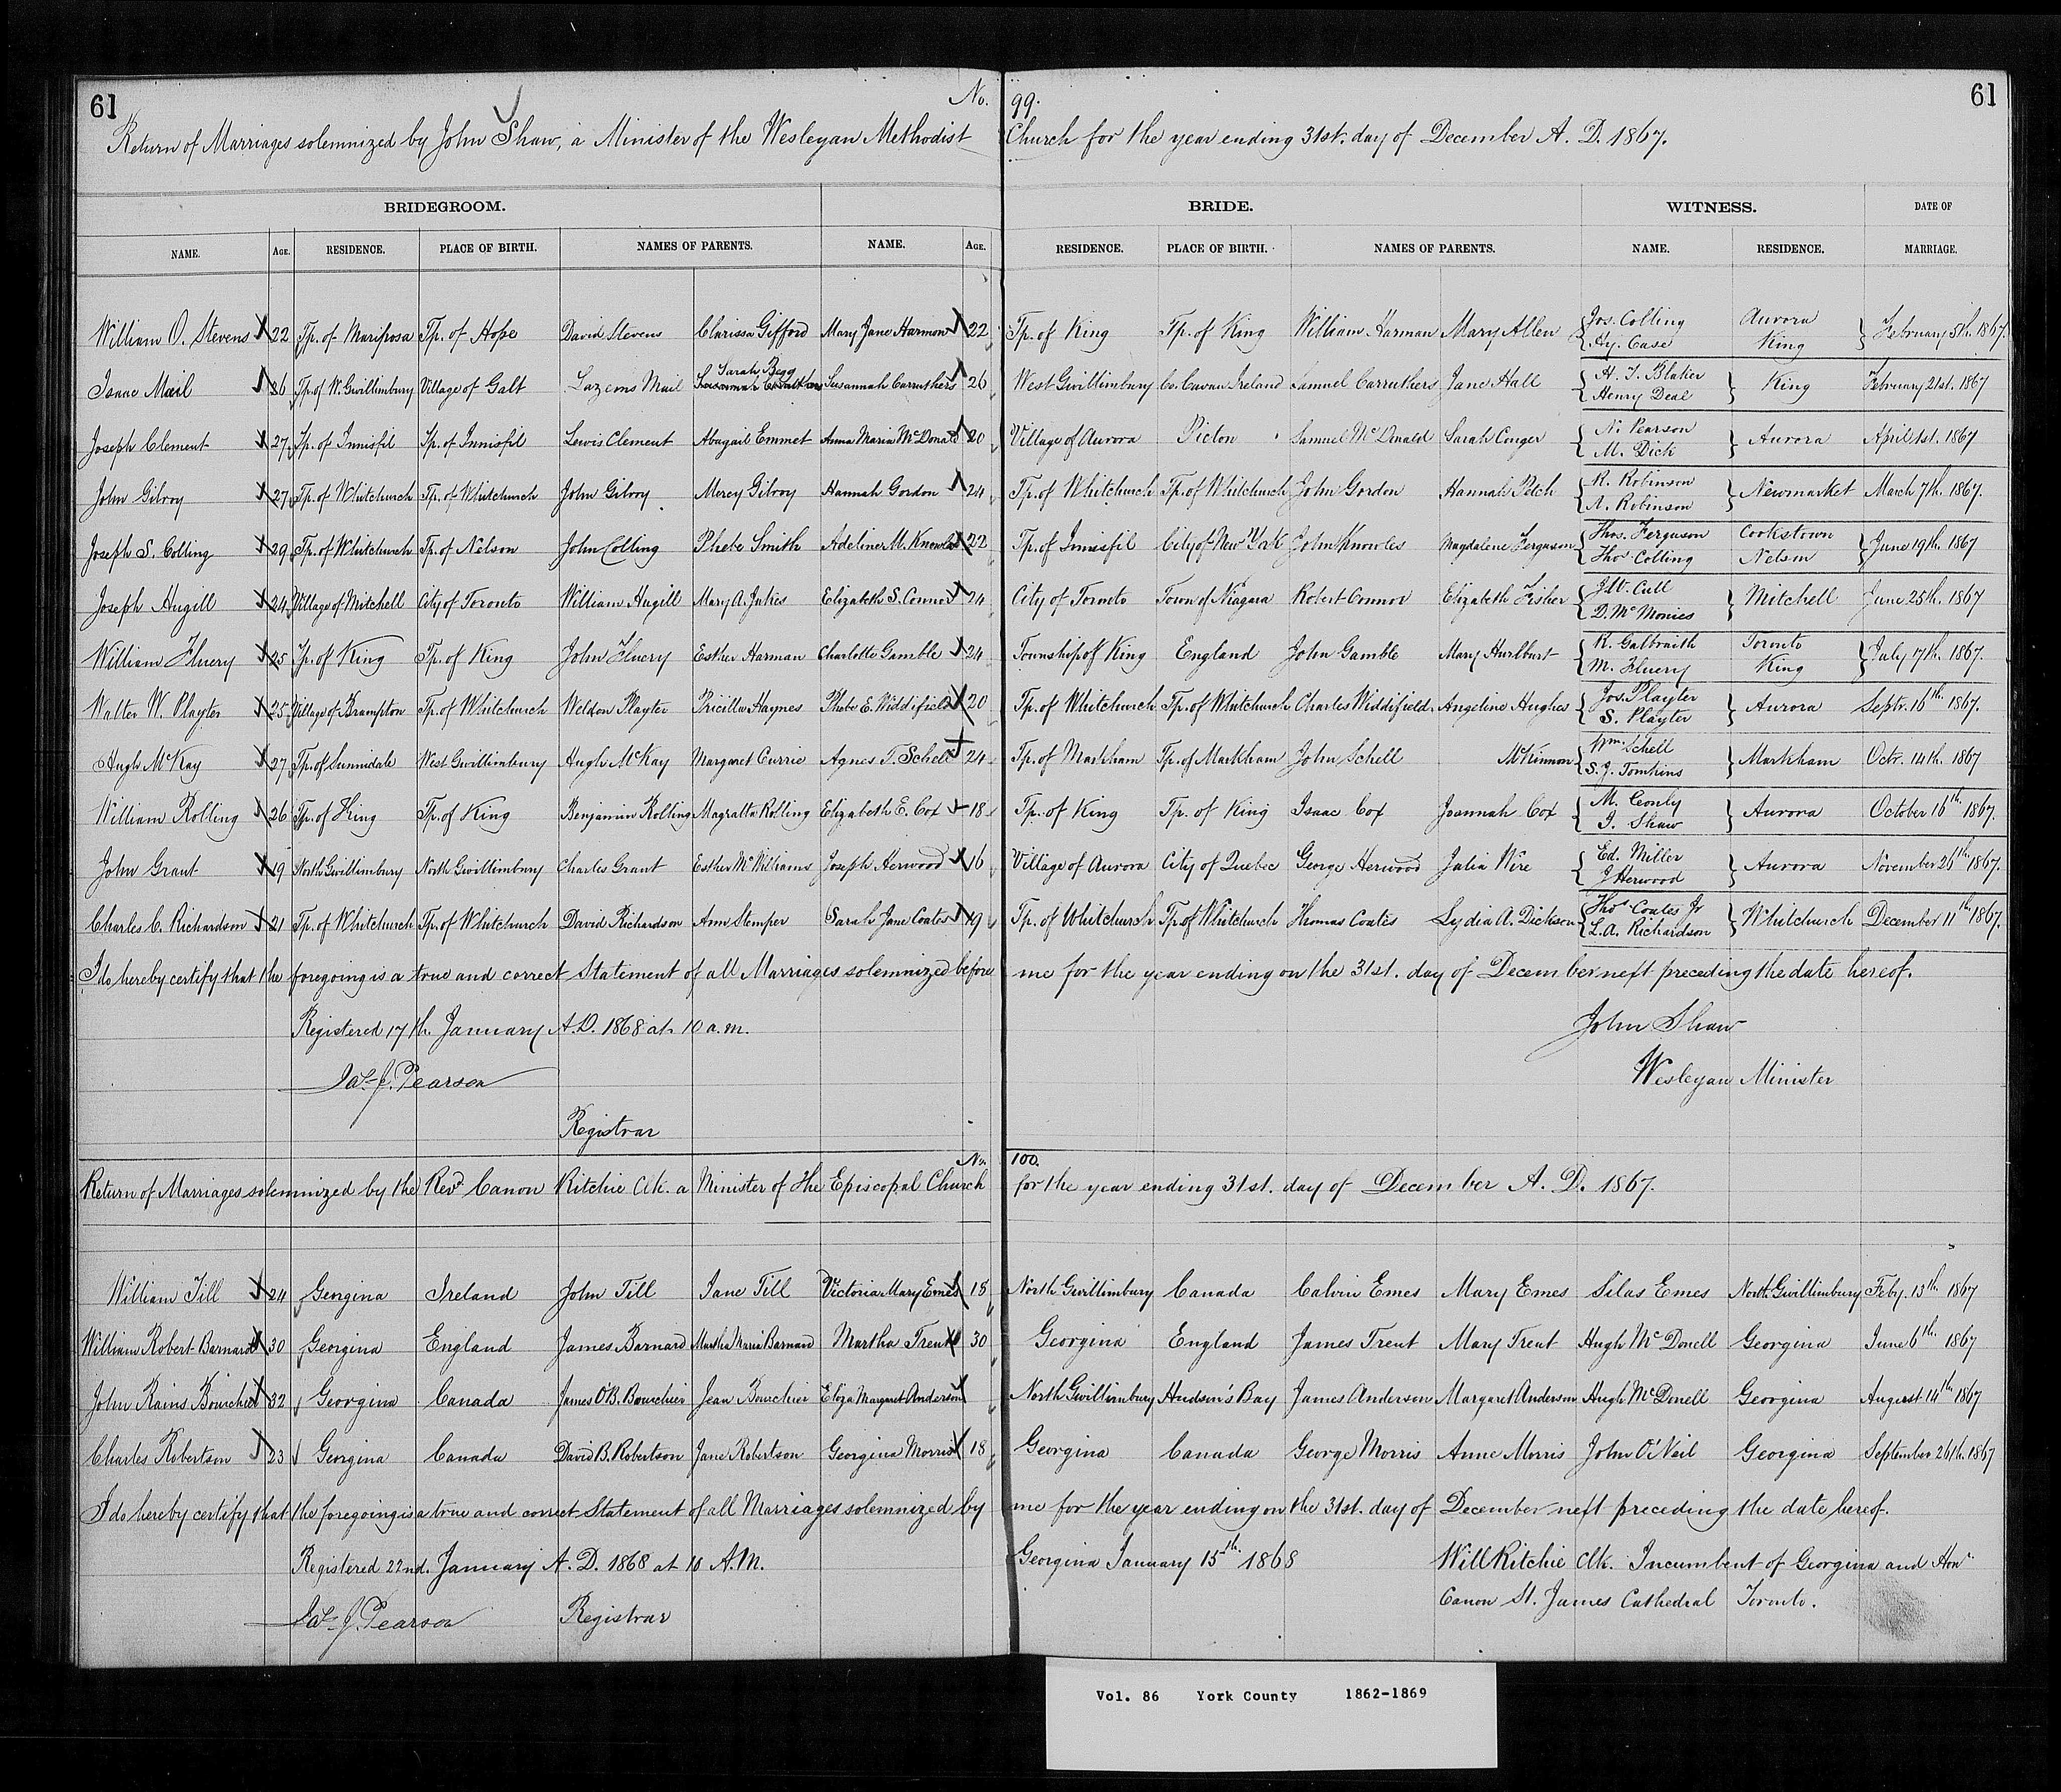 61 No. 99. 61
Return of Marriages solemnized by John Shaw, a Minister of the Wesleyan Methodist Church for the year ending 31st. day of December A. D. 1867.
BRIDEGROOM. BRIDE. WITNESS. DATE OF
NAME. AGE. RESIDENCE. PLACE OF BIRTH. NAMES OF PARENTS. NAME. AGE. RESIDENCE. PLACE OF BIRTH. NAMES OF PARENTS. NAME. RESIDENCE. MARRIAGE.
William O. Stevens 22 Tp. of Mariposa Tp. of Hope David Stevens Clarissa Gifford Mary Jane Harmon 22 Tp. of King Tp. of King William Harman Mary Allen Jos. Colling Aurora February 5th. 1867.
Hy. Case King
Isaac Mail 36 Tp. of W. Gwillimbury Village of Galt Lazems Mail Sarah Begg Susannah Carruthers 26 West Gwillimbury Co. Cavan Ireland Samuel Carruthers Jane Hall H. T. Blaker King February 21st. 1867
Henry Deal
Joseph Clement 27 Tp. of Innisfil Tp. of Innisfil Lewis Clement Abagail Emmet Anna Maria McDonald 20 Village of Aurora Picton Samuel McDonald Sarah Conger N. Pearson Aurora April 1st. 1867
M. Dick
John Gilroy 27 Tp. of Whitchurch Tp. of Whitchurch John Gilroy Mercy Gilroy Hannah Gordon 24 Tp. of Whitchurch Tp. of Whitchurch John Gordon Hannah Petch R. Robinson Newmarket March 7th. 1867.
A. Robinson
Joseph S. Colling 29 Tp. of Whitchurch Tp. of Nelson John Colling Phebe Smith Adeliner M. Knowles 22 Tp. of Innisfil City of New York John Knowles Magdalene Ferguson Thos. Ferguson Cookstown June 19th. 1867
Thos Colling Nelson
Joseph Hugill 24 Village of Mitchell City of Toronto William Hugill Mary A. Jukes Elizabeth S. Connor 24 City of Toronto Town of Niagara Robert Connor Elizabeth Fisher J.W. Cull Mitchell June 25th. 1867
D. McMonies
William Fluery 25 Tp. of King Tp. of King John Fluery Esther Harman Charlotte Gamble 24 Township of King England John Gamble Mary Hurlburt R. Galbraith Toronto July 17th. 1867.
M. Fluery King
Walter W. Playter 25 Village of Brampton Tp. of Whitchurch Weldon Playter Pricilla Haynes Phebe E. Widdifield 20 Tp. of Whitchurch Tp. of Whitchurch Charles Widdifield Angeline Hughes Jos. Playter Aurora Septr. 16th. 1867.
S. Playter
Hugh McKay 27 Tp. of Sunnidale West Gwillimbury Hugh McKay Margaret Currie Agnes T. Schell 24 Tp. of Markham Tp. of Markham John Schell McKinnon Wm. Schell Markham Octr. 14th. 1867
S. J. Tomkins
William Rolling 26 Tp. of King Tp. of King Benjamin Rolling Magratta Rolling Elizabeth E. Cox 18 Tp. of King Tp. of King Isaac Cox Joannah Cox M. Conly Aurora October 16th. 1867.
I. Shaw
John Grant 19 North Gwillimbury North Gwillimbury Charles Grant Esther McWilliams Joseph Herwood 16 Village of Aurora City of Quebec George Herwood Julia Wire Ed. Miller Aurora November 26th. 1867.
J Herwood
Charles C. Richardson 21 Tp. of Whitchurch Tp. of Whitchurch David Richardson Ann Stemper Sarah Jane Coates 19 Tp. of Whitchurch Tp. of Whitchurch Thomas Coates Lydia A. Dickson Thos Coates Jr Whitchurch December 11th. 1867.
L.A. Richardson
I do hereby certify that the foregoing is a true and correct Statement of all Marriages solemnized before me for the year ending on the 31st. day of December next preceding the date hereof.
Registered 17th. January A.D. 1868 at 10 a.m. John Shaw
Jas. J. Pearson Wesleyan Minister
Registrar
No. 100.
Return of Marriages solemnized by the Revd. Canon Ritchie Clk. a Minister of the Episcopal Church for the year ending 31st. day of December A. D. 1867.
William Till 24 Georgina Ireland John Till Jane Till Victoria Mary Emes 18 North Gwillimbury Canada Calvin Emes Mary Emes Silas Emes North Gwillimbury Feby. 13th 1867
William Robert Barnard 30 Georgina England James Barnard Martha Maria Barnard Martha Trent 30 Georgina England James Trent Mary Trent Hugh McDonell Georgina June 6th 1867
John Rains Bourchier 32 Georgina Canada James O'B. Bourchier Jean Bourchier Eliza Margaret Anderson North Gwillimbury Hudson's Bay James Anderson Margaret Anderson Hugh McDonell Georgina August 14th 1867
Charles Robertson 23 Georgina Canada David B. Robertson Jane Robertson Georgina Morris 18 Georgina Canada George Morris Anne Morris John O'Neil Georgina September 26th. 1867
I do hereby certify that the foregoing is a true and correct Statement of all Marriages solemnized by me for the year ending on the 31st. day of December next preceding the date hereof.
Registered 22nd. January A. D. 1868 at 10 A.M. Georgina January 15th 1868 Will Ritchie Clk. Incumbent of Georgina and Hony
Jas. J. Pearson Registrar Canon St. James Cathedral Toronto.
Vol. 86 York County 1862-1869